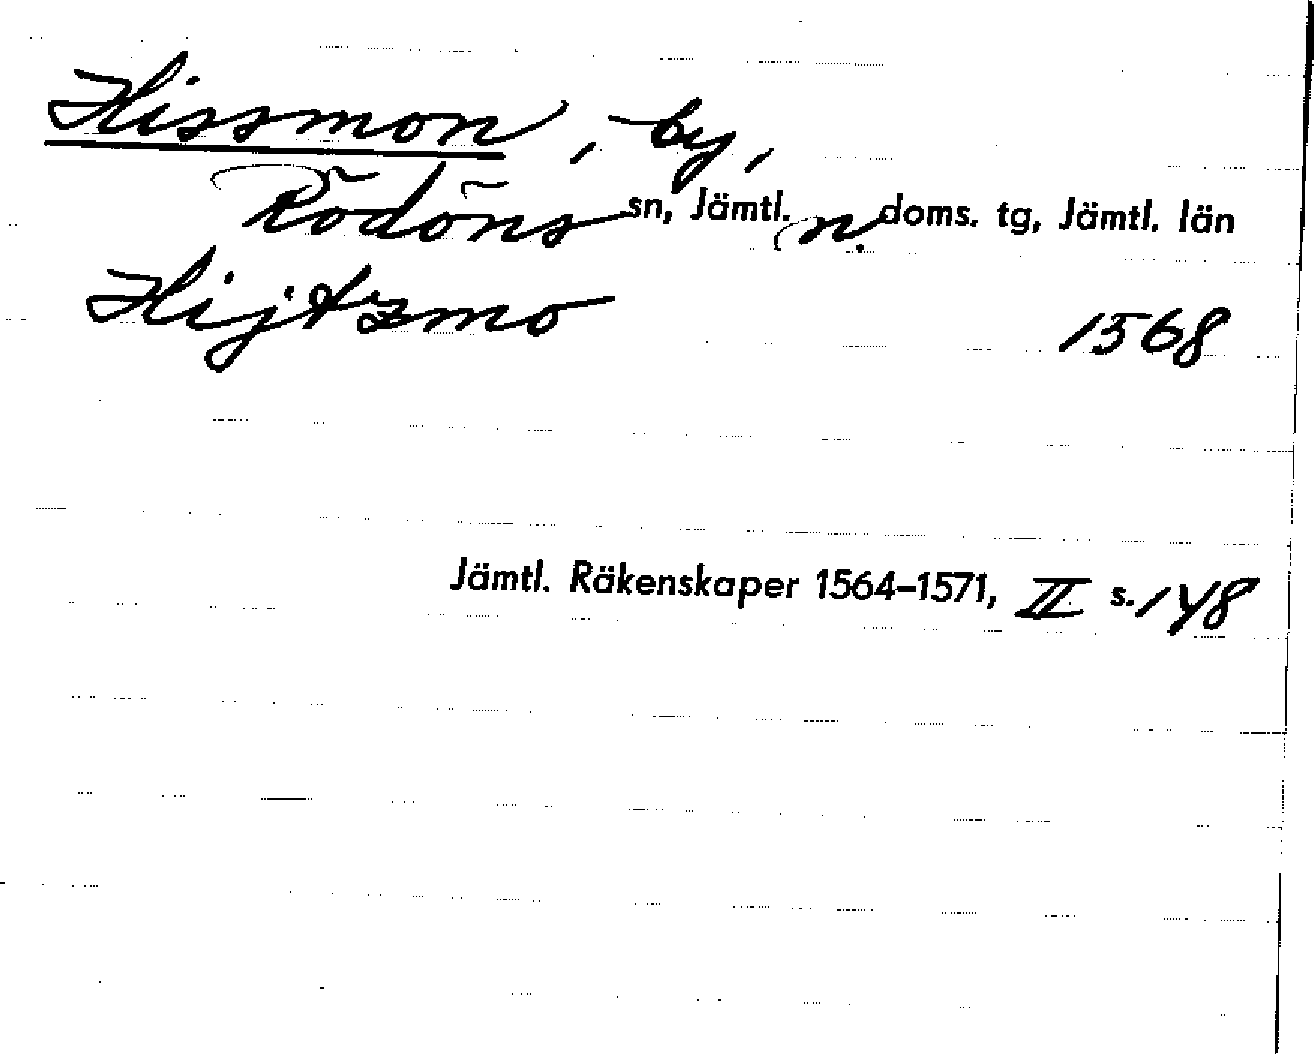 Hissmon, by,
Rödöns sn, Jämtl. n. doms. tg, Jämtl. län
Hijtzmo 1568
Jämtl. Räkenskaper 1564–1571, II s. 148